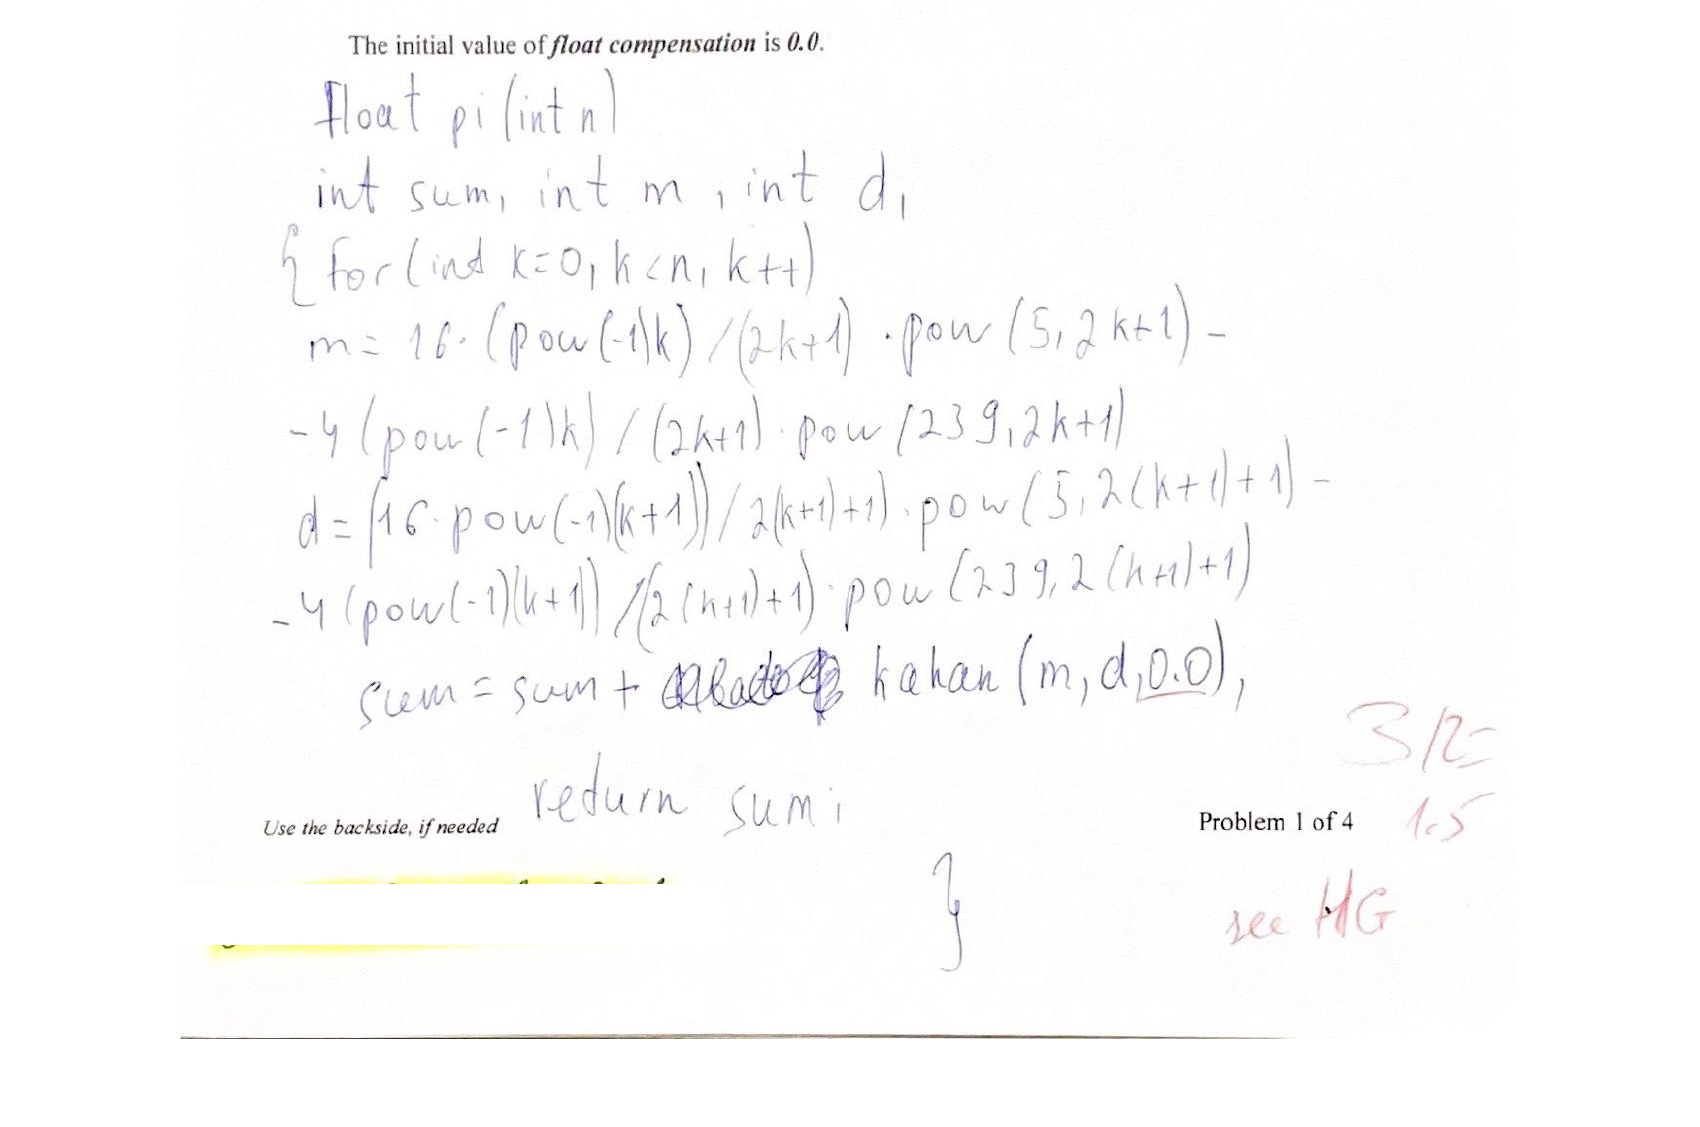 The initial value of float compensation is 0.0.
float pi (int n)
int sum, int m, int d,
{ for (int k=0, k<n, k++)
m = 16 · (pow(-1)k) / (2k+1) · pow (5, 2k+1) -
-4 (pow(-1)k) / (2k+1) · pow (239, 2k+1)
d = (16 · pow(-1)(k+1)) / 2(k+1)+1) · pow (5, 2(k+1)+1) -
-4 (pow(-1)(k+1)) / (2(k+1)+1) · pow (239, 2(k+1)+1)
sum = sum + kahan (m, d, 0.0),
3/2=
return sum;
Use the backside, if needed
Problem 1 of 4
1.5
}
see HG